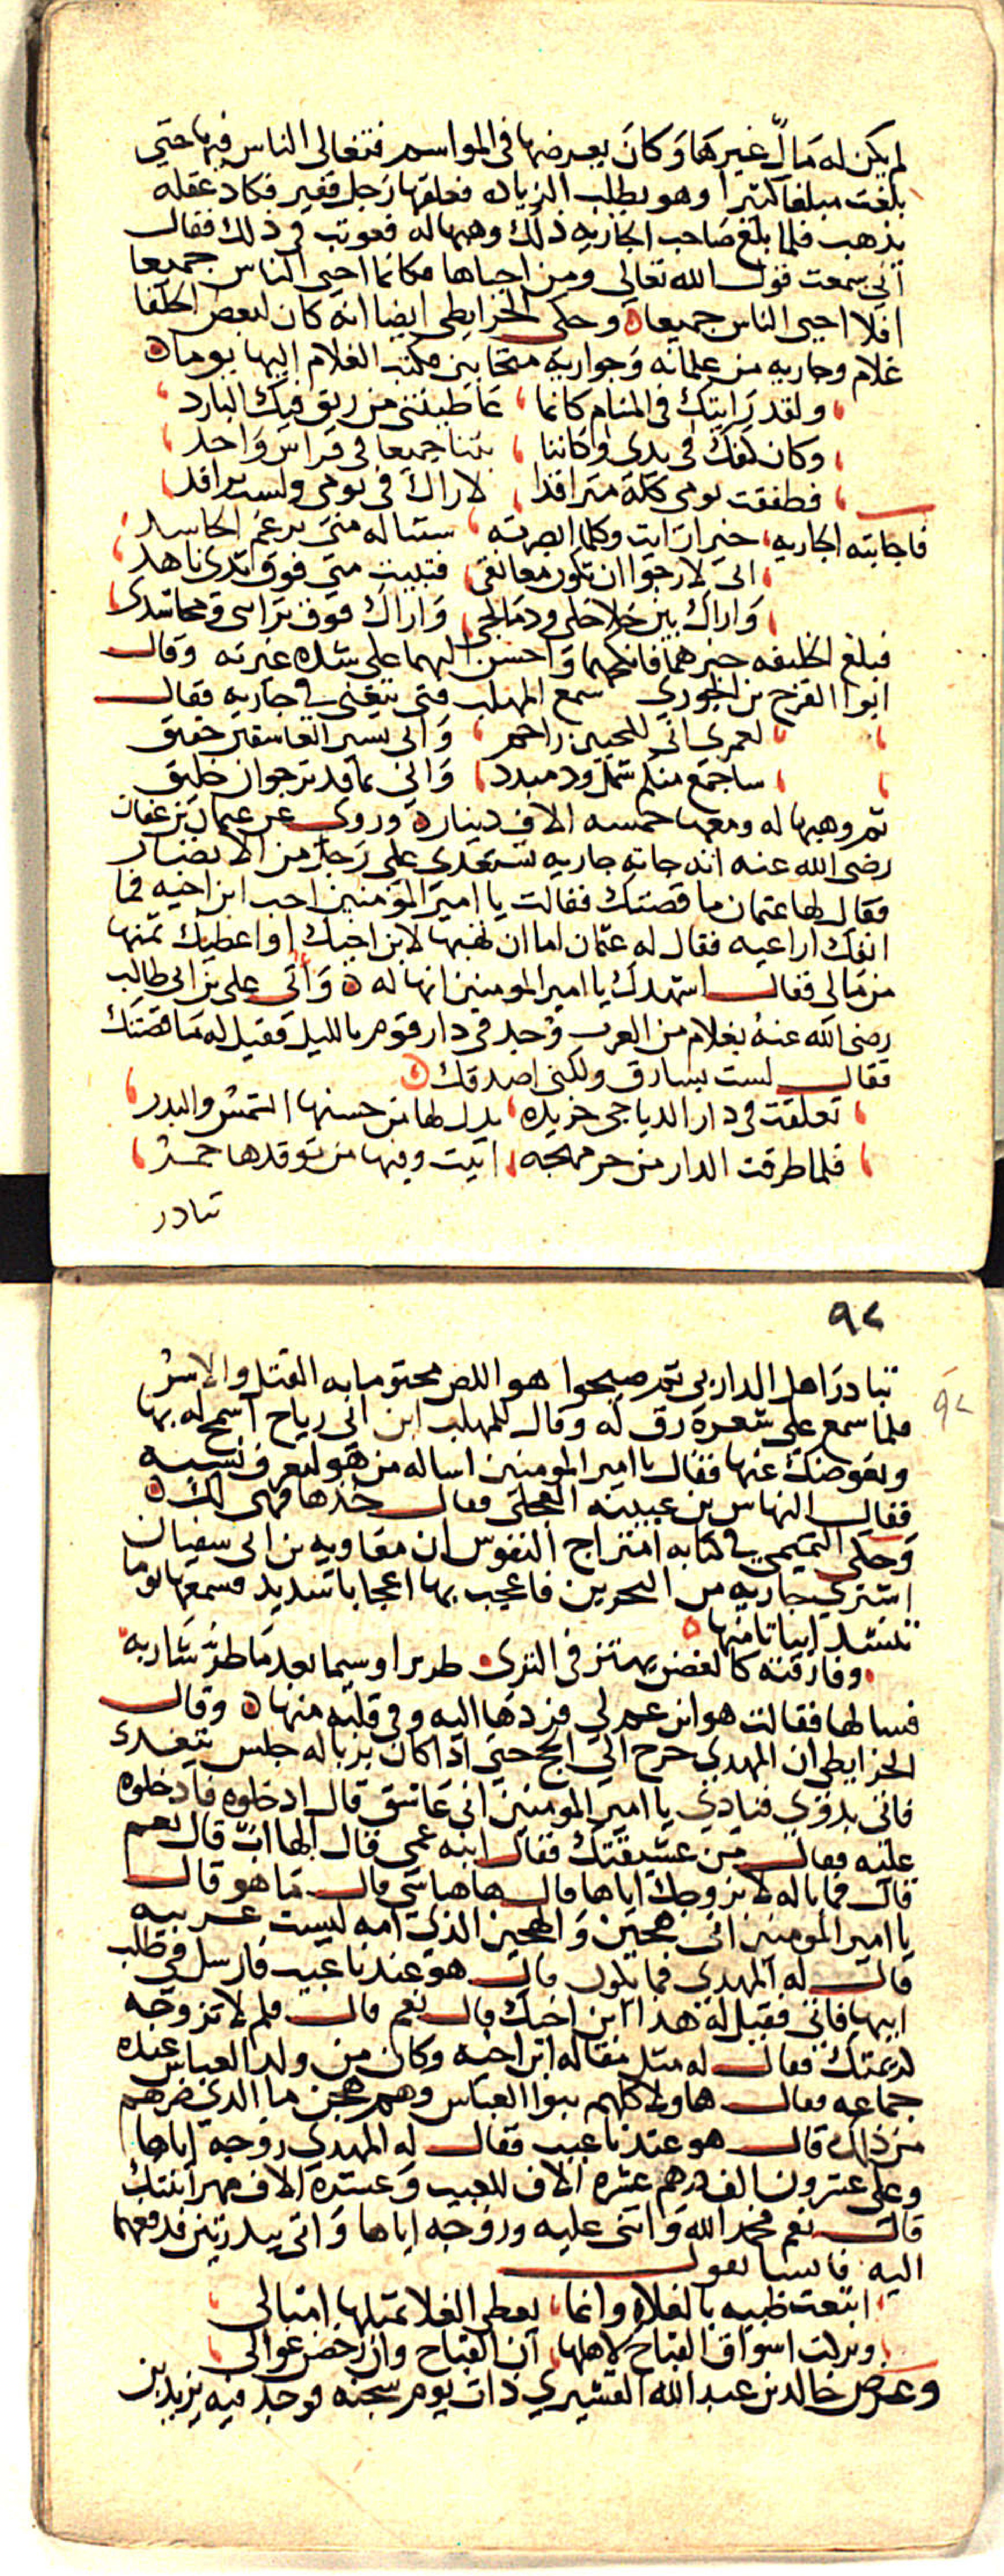 لم يكن له مال غيرها وكان يعرضها في المواسم فتغالى الناس فيها حتي
بلغت مبلغا كثيرا وهو يطلب الزياده فعلقها رجل فقير فكاد عقله
يذهب فلما بلغ صاحب الجاريه ذلك وهبها له فعوتب في ذلك فقال
اني سمعت قول الله تعالى ومن احياها فكانما احيى الناس جميعا
افلا احيى الناس جميعا وحكى الخرايطي ايضا انه كان لبعض الخلفا
غلام وجاريه من غلمانه وجواريه متحابين فكتب الغلام اليها يوما
ولقد رايتك في المنام كانما عاطيتني من ريق فيك البارد
وكان كفك في يدي وكاننا بتنا جميعا في فراش واحد
فطفقت يومي كله متراقدا لاراك في نومي ولست براقد
فاجابته الجاريه خيرا رايت وكلما ابصرته ستناله مني برغم الحاسد
اني لارجوا ان تكون معانقي فتبيت مني فوق ثدي ناهد
واراك بين خلاخلي ودمالجي واراك فوق ترائبي ومجاسدي
فبلغ الخليفه خبرهما فانكحهما واحسن اليهما على شده غيرته وقال
ابوا الفرج بن الجوزي سمع المهلب فتى يتغنى في جاريه فقال
لعمري اني للمحبين راحم واني بستر العاشقين حقيق
ساجمع منكم شمل ود مبدد واني بما قد ترجوان خليق
ثم وهبها له ومعها خمسه الاف دينار وروى عن عثمان بن عفان
رضي الله عنه انه جاته جاريه تستعدي على رجل من الانصار
فقال لها عثمان ما قصتك فقالت يا امير المومنين احب ابن اخيه فما
انفك اراعيه فقال له عثمان اما ان تهبها لابن اخيك او اعطيك ثمنها
من مالي فقال اشهدك يا امير المومنين انها له واتى علي بن ابي طالب
رضي الله عنه بغلام من العرب وجد في دار قوم بالليل فقيل له ما قصتك
فقال لست بسارق ولكني اصدقك
تعلقت في دار الدياجي خريده يدل لها من حسنها الشمش والبدر
فلما طرقت الدار من حر مهجه اتيت وفيها من توقدها جمر
تبادر
٩٢
٩٢
تبادر اهل الدار بي ثم صيحوا هو اللص محتوما به القتل والاسر
فلما سمع على شعره رق له وقال للمهلب ابن ابي رياح اسمح له بها
ونعوضك عنها فقال يا امير المومنين اساله من هو لنعرف نسبه
فقال النهاس بن عيينه العجلي فقال خذها فهي لك
وحكى التميمي في كتابه امتزاج النفوس ان معاويه بن ابي سفيان
اشترى جاريه من البحرين فاعجب بها اعجابا شديد فسمعها يوما
تنشد ابياتا منها
وفارقته كالغصن يهتز في الثرى طريرا وسيما بعد ما طر شاربه
فسالها فقالت هو ابن عم لي فردها اليه وفي قلبه منها وقال
الخرايطي ان المهدي خرج الي الحج حتي اذا كان بزباله جلس يتغدى
فاتى بدوي فنادي يا امير المومنين اني عاشق قال ادخلوه فادخلوه
عليه فقال من عشيقتك فقال ابنه عمي قال الها اب قال نعم
قال فما باله لا يزوجك اياها قال هاهنا شي قال ما هو قال
يا امير المومنين اني هجين والهجين الذي امه ليست عربيه
قال له المهدي فما يكون قال هو عندنا عيب فارسل في طلب
ابيها فاتي فقيل له هذا ابن اخيك قال نعم قال فلم لا تزوجه
كريمتك فقال له مثل مقاله ابن اخيه وكان من ولد العباس عنده
جماعه فقال هاولا كلهم بنوا العباس وهم هجن ما الذي ضرهم
من ذلك قال هو عندنا عيب فقال له المهدي زوجه اياها
وعلى عشرون الف درهم عشره الاف للعيب وعشره الاف مهر ابنتك
قال نعم فحمد الله واثنى عليه وزوجه اياها واتى ببدرتين فدفعهما
اليه فانشا يقول
ابتعت ظبيه بالغلاء وانما يعطي الغلا بمثلها امثالى
وتركت اسواق القباح لاهلها ان القباح وان رخصن غوالي
وعرض خالد بن عبد الله القشيري ذات يوم سجنه فوجد فيه يزيد بن